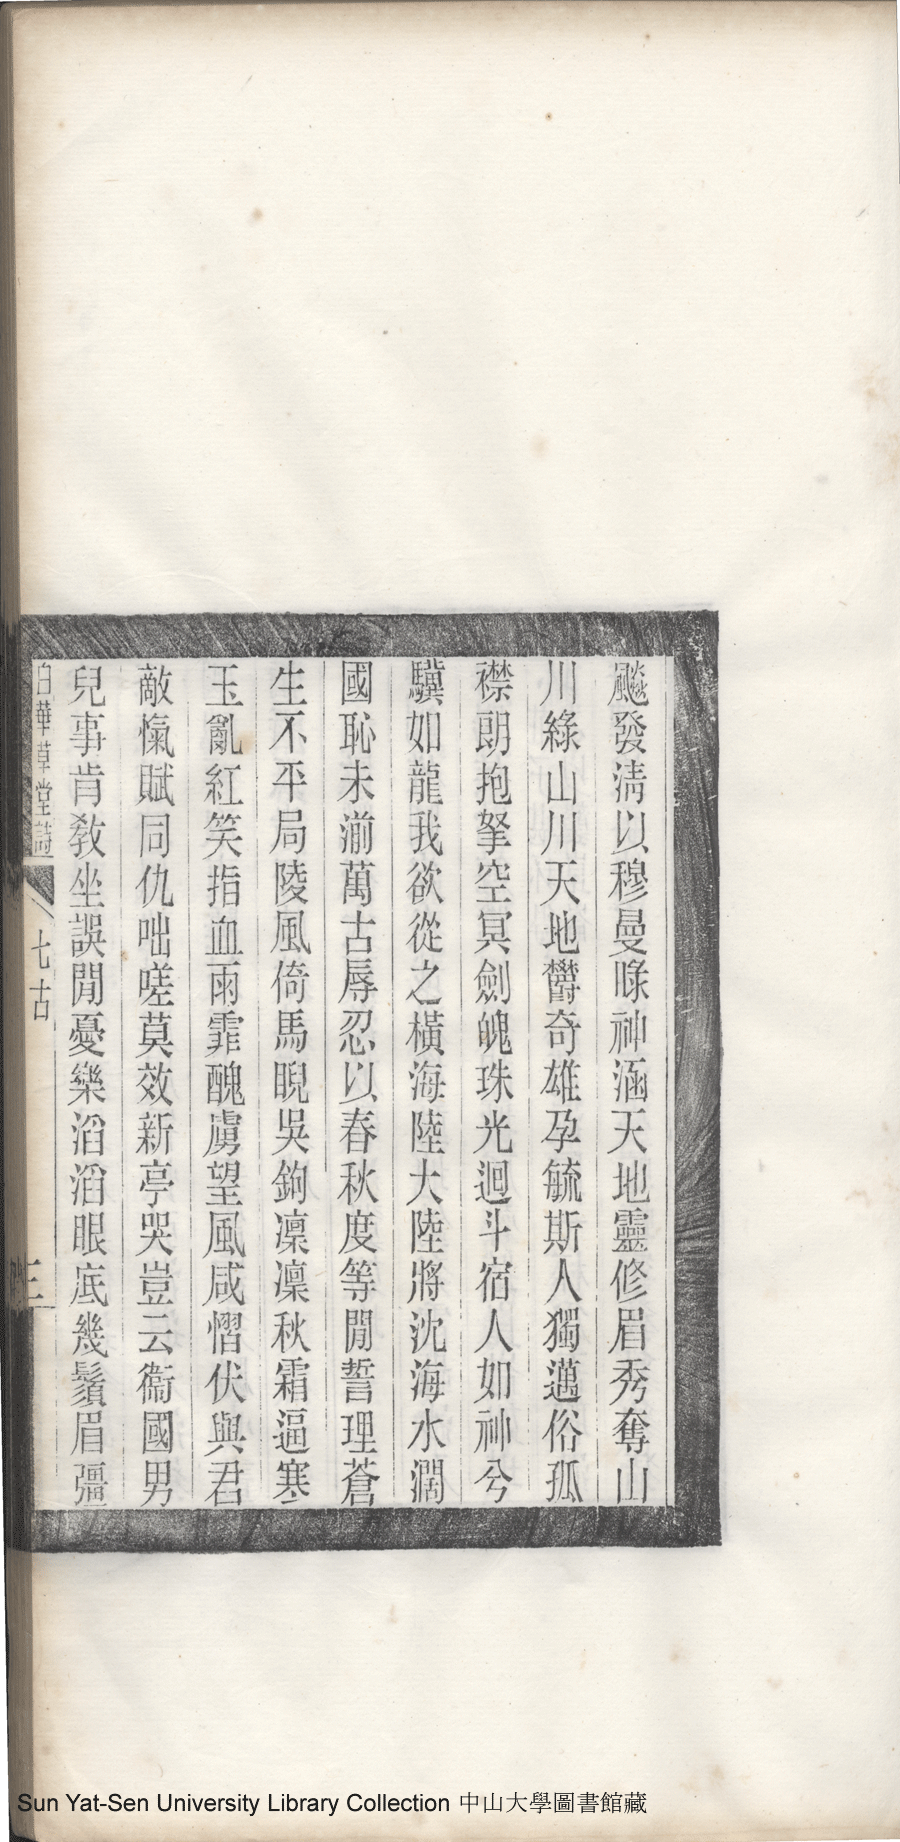 飈發淸以穆曼睩神涵天地靈修眉秀奪山
川綠山川天地欝奇雄孕毓斯人獨邁俗孤
襟朗抱拏空冥劍魄珠光迴斗宿人如神兮
驥如龍我欲從之橫海陸大陸將沈海水濶
國恥未湔萬古辱忍以春秋度等閒誓理蒼
生不平局陵風倚馬睨吳鉤凛凛秋霜逼寒
玉亂紅笑指血雨霏醜虜望風咸慴伏與君
敵愾賦同仇咄嗟莫效新亭哭豈云衞國男
兒事肯敎坐誤閒憂樂滔滔眼底幾鬚眉彊
白華草堂詩 七古 三
Sun Yat-Sen University Library Collection 中山大學圖書館藏